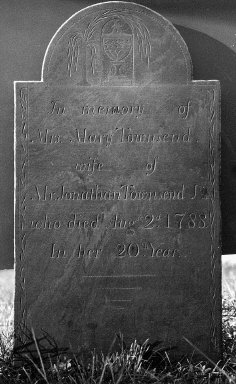 In memory of
Mrs Mary Townsend,
wife of
Mr Jonathan Townsend Jr
who died Aug 2d 1788
In her 20 Year.